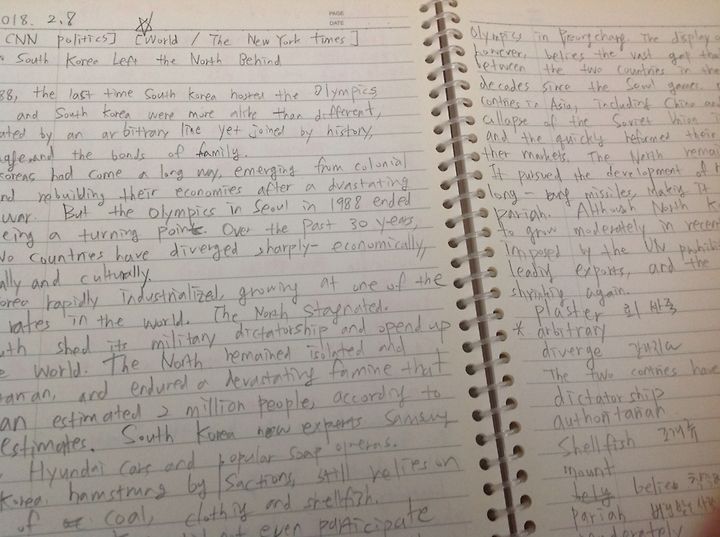 018. 2. 8
PAGE
DATE
CNN politics] [World / The New York Times]
South Korea Left the North Behind
88, the last time South Korea hosted the Olympics
and South Korea were more alike than different,
ated by an arbitrary line yet joined by history,
and the bonds of family.
Koreas had come a long way, emerging from colonial
nd rebuilding their economies after a dvastating
war. But the Olympics in Seoul in 1988 ended
eing a turning point. Over the Past 30 years,
wo countries have diverged sharply- economically,
ally and culturally.
orea rapidly industrialized, growing at one of the
rates in the world. The North Stagnated.
uth shed its military dictatorship and opend up
e World. The North remained isolated and
tarian, and endured a devastating famine that
an estimated 2 million people, accordiy to
estimates. South Korea now exports Samsung
Hyundai Cars and popular soap operas.
Korea, hamstrung by Sactions, still relies on
of coal, clothiy and shellfish.
even participate
Olympics in Pyeongchang. The display o
however, belies the vast gap tha
between the two countries in the
decades since the Seoul games.
contries in Asia, including China and
collapse of the Soviet Union
and the quickly reformed their
ther markets. The North remai
It pursued the development of
long - missiles, making it
pariah. Although North K
to grow moderately in recen
Imposed by the UN prohibi
leading exports, and the
shrinking again.
plaster
* arbitrary
diverge 갈라지다
The two contries have
dictatorship
authoritarian
Shellfish 조개류
mount
belies
pariah
moderately